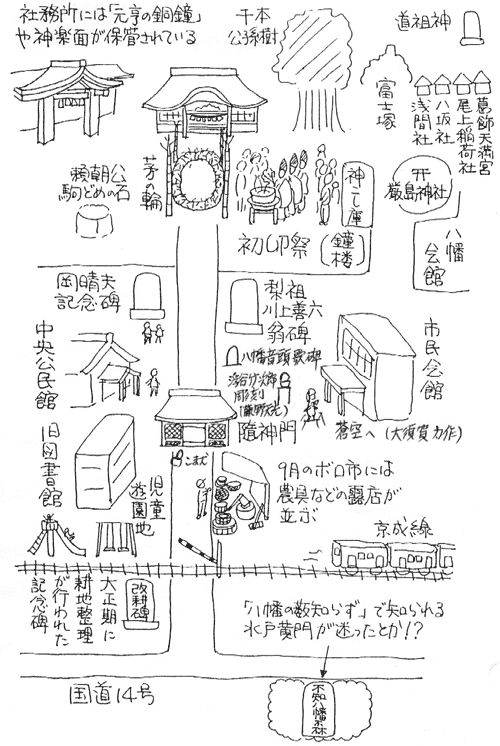 社務所には「元亨の銅鐘」
や神楽面が保管されている
千本
公孫樹
道祖神
富士塚
浅間社
八坂社
尾上稲荷社
葛飾天満宮
厳島神社
八幡
会館
頼朝公
駒どめの石
茅の輪
神こし庫
(鐘楼)
初卯祭
岡晴夫
記念碑
梨祖
川上善六
翁碑
八幡音頭歌碑
彫刻
中央公民館
市民会館
蒼空へ(大須賀力作)
随神門
こまだ
旧図書館
児童
遊園地
9月のボロ市には
農具などの露店が
並ぶ
京成線
大正期に
耕地整理
が行われた
記念碑
改耕碑
「八幡の藪知らず」で知られる
水戸黄門が迷ったとか!?
国道14号
不知八幡森